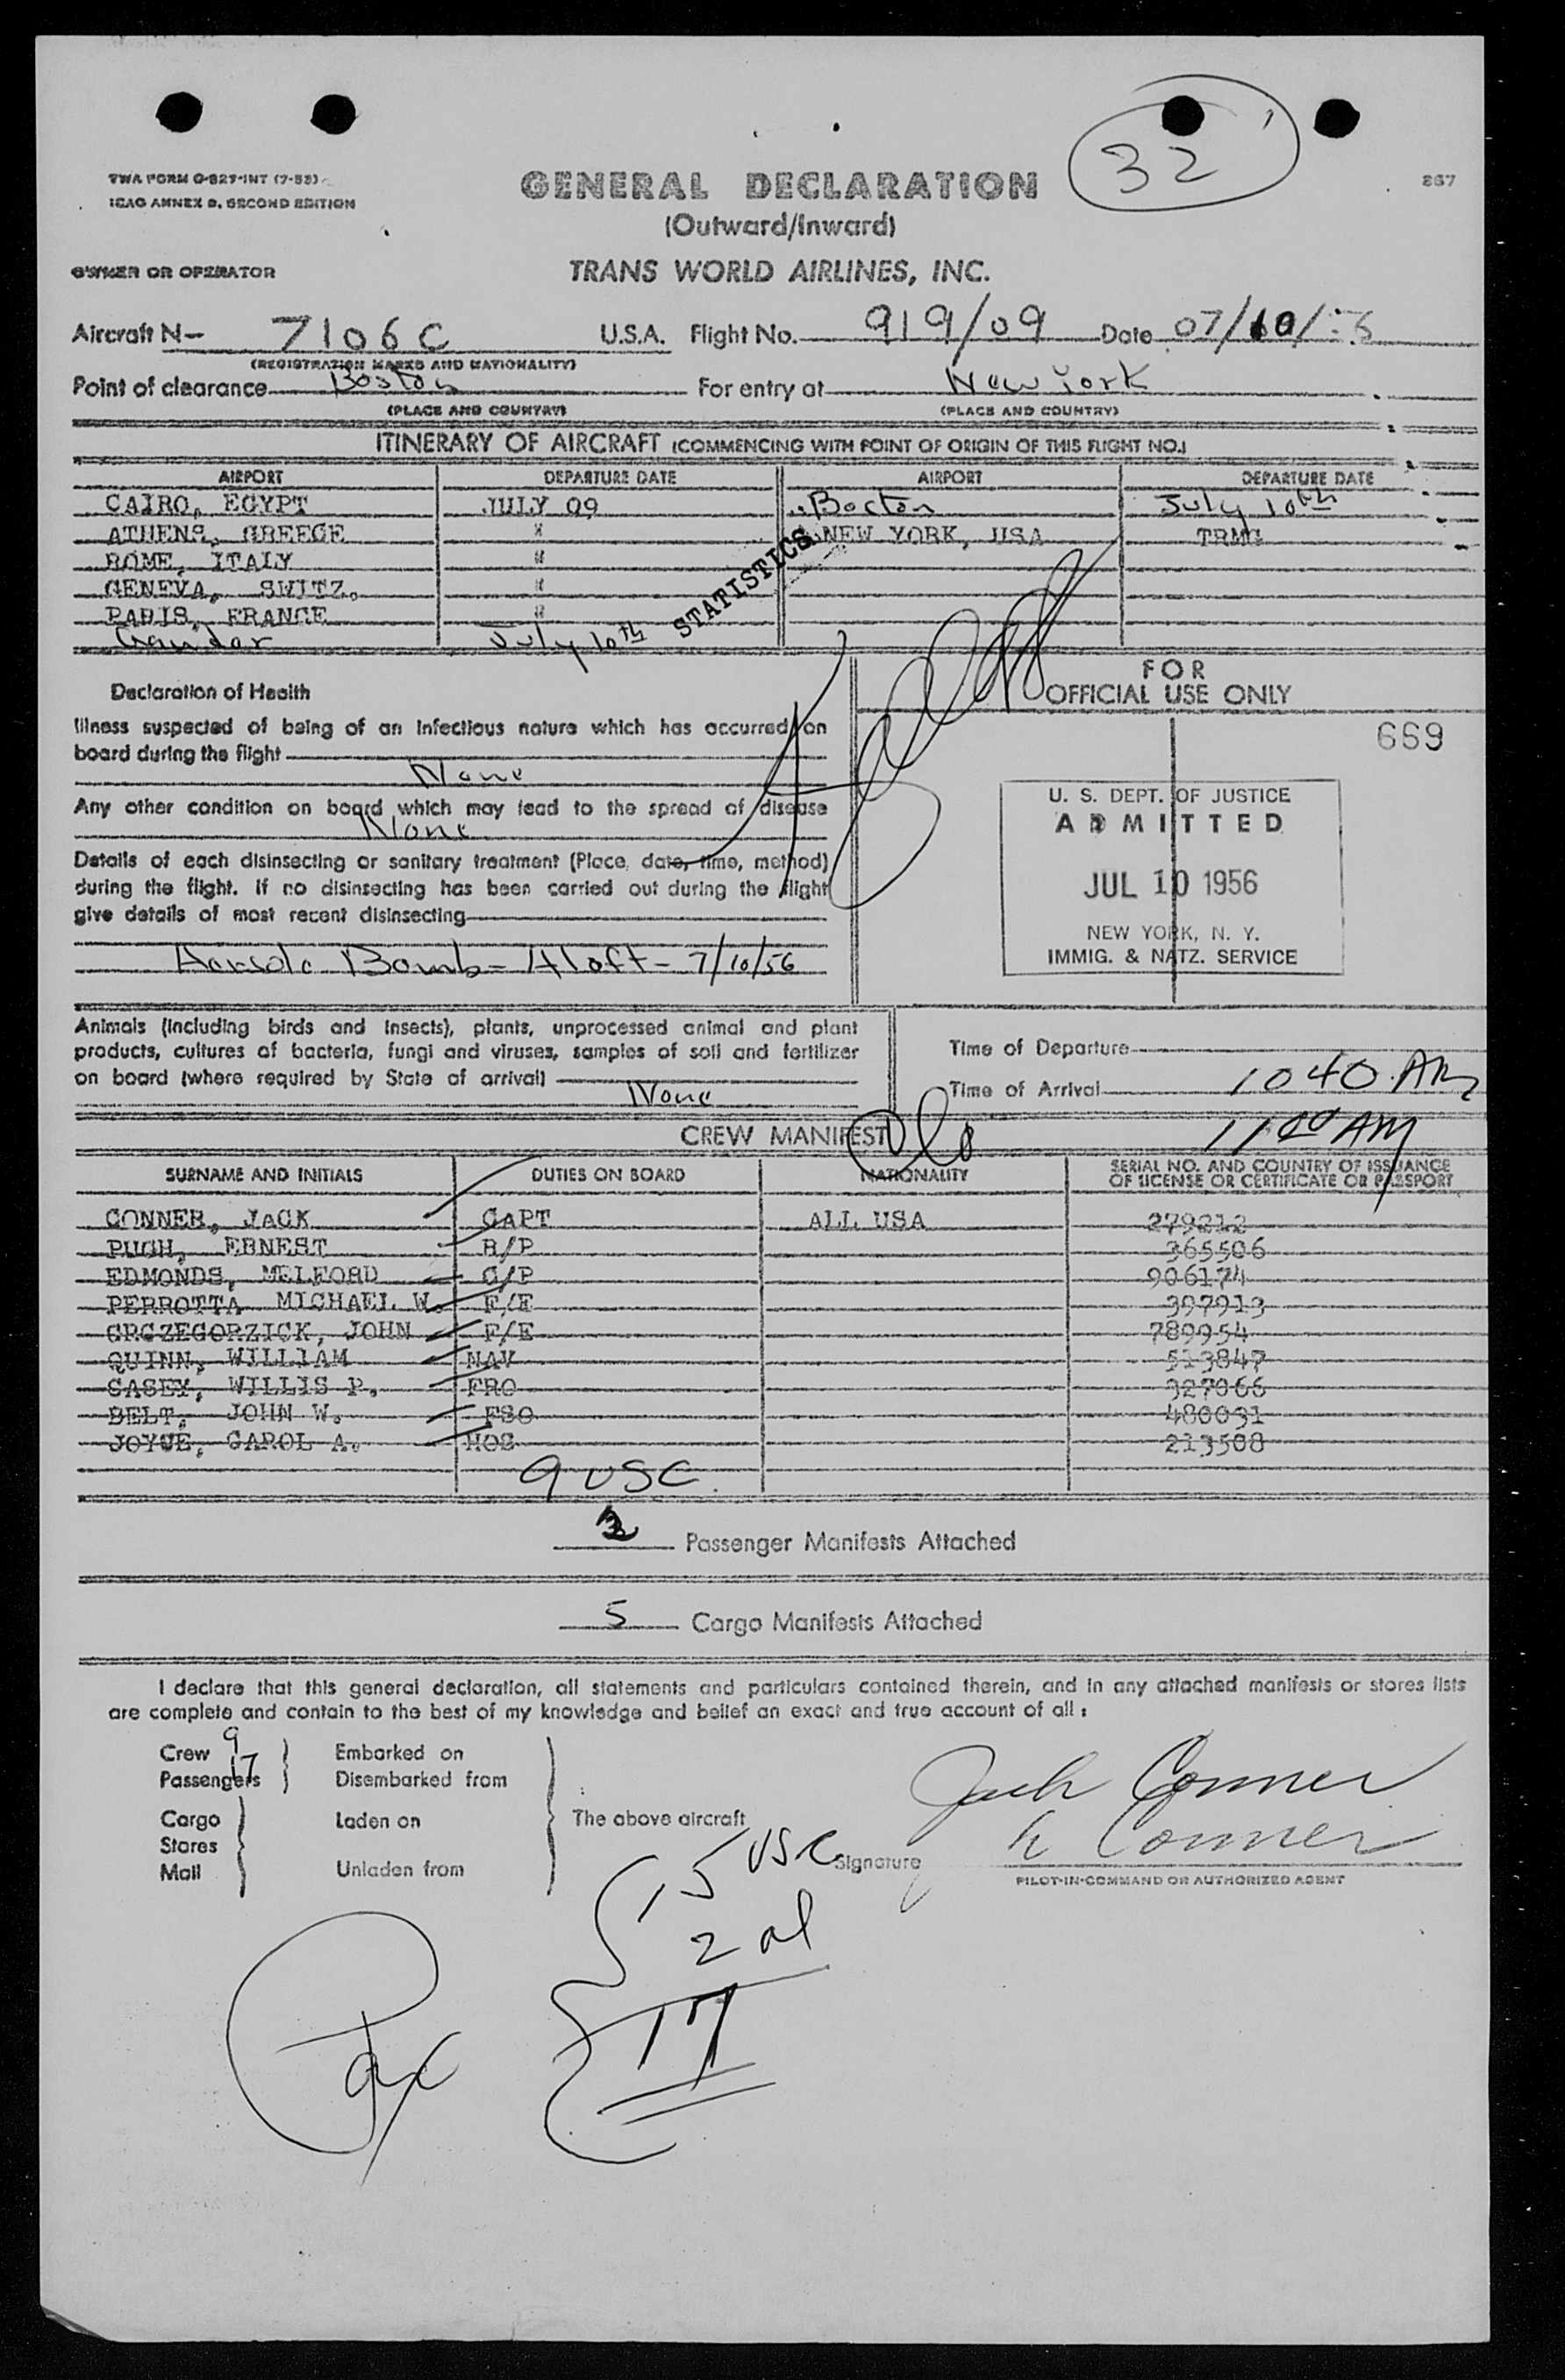 32
TWA FORM G-827-INT (7-53)
ICAO ANNEX 9, SECOND EDITION
GENERAL DECLARATION
(Outward/Inward)
867
OWNER OR OPERATOR
TRANS WORLD AIRLINES, INC.
Aircraft N- 7106C U.S.A. Flight No. 919/09 Date 07/10/56
(REGISTRATION MARKS AND NATIONALITY)
Point of clearance Boston For entry at New York
(PLACE AND COUNTRY) (PLACE AND COUNTRY)
ITINERARY OF AIRCRAFT (COMMENCING WITH POINT OF ORIGIN OF THIS FLIGHT NO.)
AIRPORT DEPARTURE DATE AIRPORT DEPARTURE DATE
CAIRO, EGYPT JULY 09 Boston July 10th
ATHENS, GREECE " NEW YORK, USA TRMG
ROME, ITALY "
GENEVA, SWITZ. "
PARIS, FRANCE "
Gander July 10th
STATISTICS
Declaration of Health
FOR
OFFICIAL USE ONLY
Illness suspected of being of an infectious nature which has occurred on
board during the flight
None
669
Any other condition on board which may lead to the spread of disease
None
Details of each disinsecting or sanitary treatment (Place, date, time, method)
during the flight. If no disinsecting has been carried out during the flight
give details of most recent disinsecting
Aerosol Bomb - Aloft - 7/10/56
U. S. DEPT. OF JUSTICE
ADMITTED
JUL 10 1956
NEW YORK, N. Y.
IMMIG. & NATZ. SERVICE
Animals (including birds and insects), plants, unprocessed animal and plant
products, cultures of bacteria, fungi and viruses, samples of soil and fertilizer
on board (where required by State of arrival)
None
Time of Departure
Time of Arrival 1040 AM
1100 AM
CREW MANIFEST
SURNAME AND INITIALS DUTIES ON BOARD NATIONALITY SERIAL NO. AND COUNTRY OF ISSUANCE
OF LICENSE OR CERTIFICATE OR PASSPORT
CONNER, JACK CAPT ALL USA 279212
PUGH, ERNEST R/P 365506
EDMONDS, MELFORD C/P 906174
PERROTTA MICHAEL W. F/E 397913
GRGZEGORZICK, JOHN F/E 789954
QUINN, WILLIAM NAV 513847
CASEY, WILLIS P. FRO 327066
BELT, JOHN W. FSO 480031
JOYCE, CAROL A. HOS 213508
9 USC
3 Passenger Manifests Attached
5 Cargo Manifests Attached
I declare that this general declaration, all statements and particulars contained therein, and in any attached manifests or stores lists
are complete and contain to the best of my knowledge and belief an exact and true account of all :
Crew 9 Embarked on
Passengers 17 Disembarked from
Cargo Laden on The above aircraft
Stores
Mail Unladen from
Jack Conner
Conner
Signature
PILOT-IN-COMMAND OR AUTHORIZED AGENT
15 USC
2 al
17
Pax